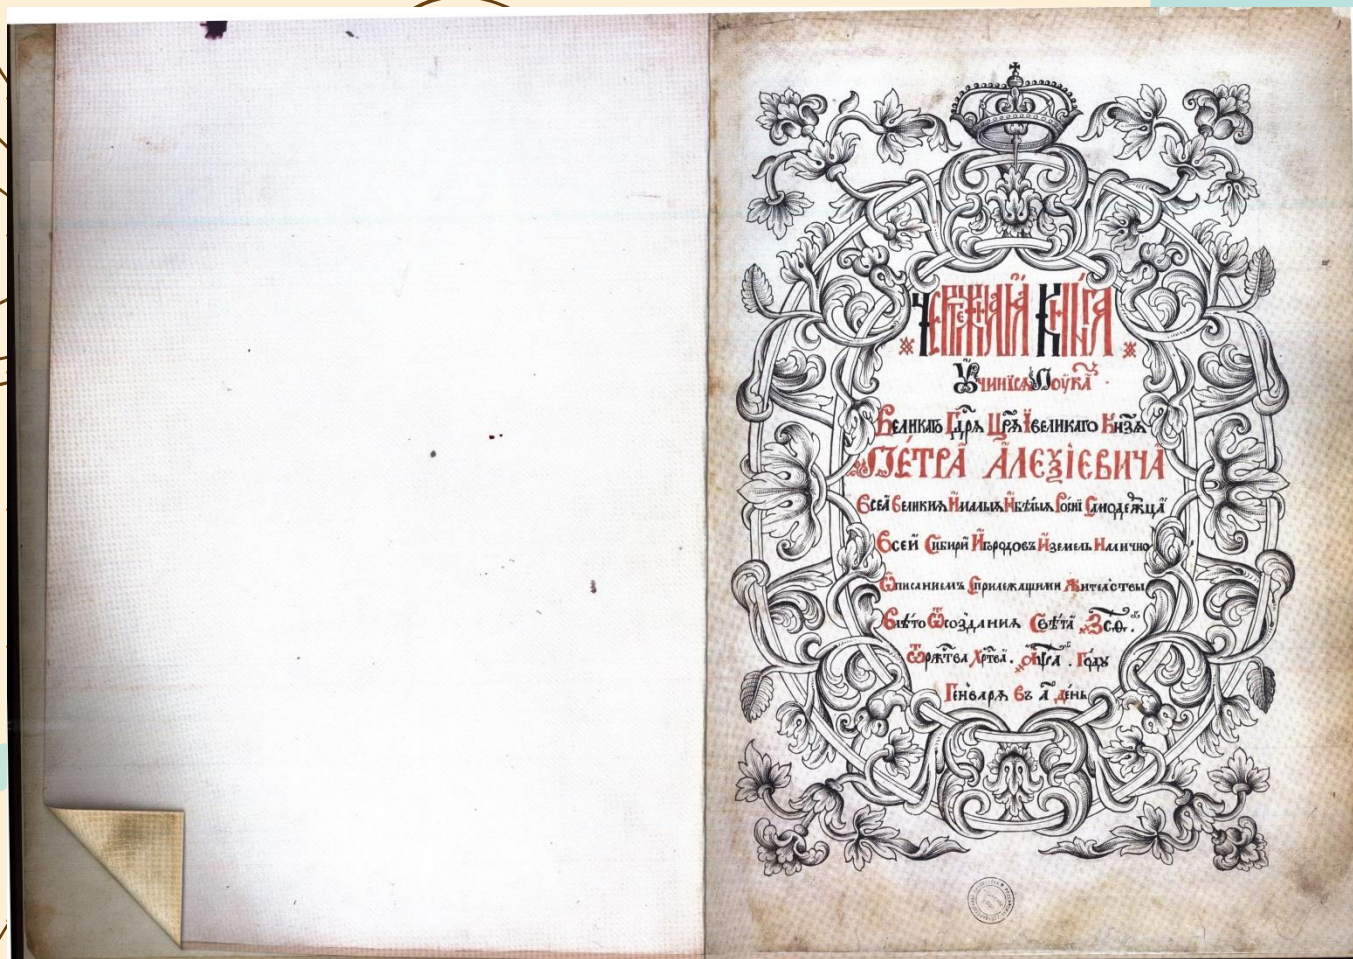 Чертежнаѧ Кнїга
Ꙋчинисѧ По ꙋкаꙁꙋ
Великагѡ Гдрѧ Црѧ Ї великаго Кнѕѧ
ПЕТРА АЛЕѮІЕВИЧА
Всеѧ Великиѧ И малыѧ И бѣлыѧ Росиї Самодержца
Всей Сибири И городовъ И земель Налично
Ѡписаниемъ С прилежащими Жителствы
В лѣто Ѿ создания Свѣта ҂ЗСѲ.
Ѿ ржтва Хртва. ҂АѰА. Годꙋ
Генварѧ Въ А день